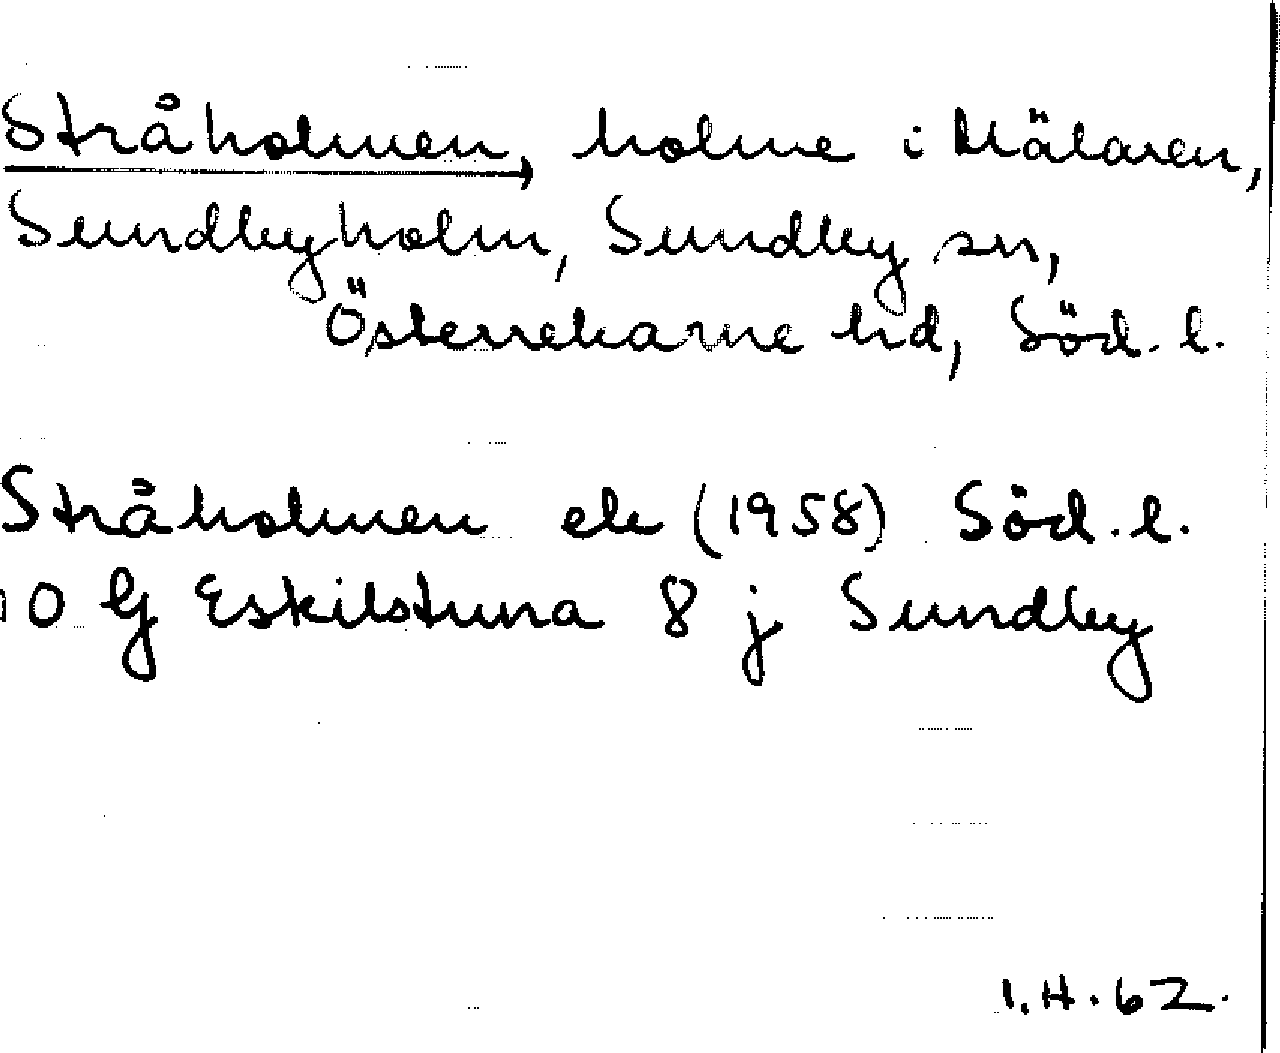 Stråholmen, holme i Mälaren,
Sundbyholm, Sundby sn,
Österrekarne hd, Söd. l.
Stråholmen ek (1958) Söd. l.
10 G Eskilstuna 8 j Sundby
I. H. 62.